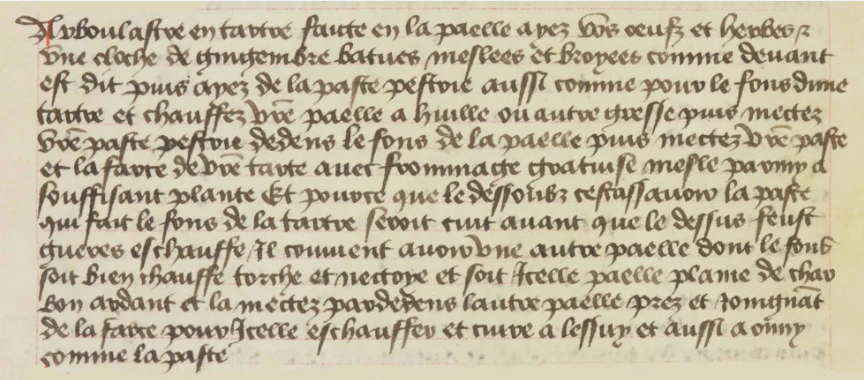 Arboulastre en tartre faicte en la paelle ayez vos oeufz et herbes z
vne cloche de gingembre batues meslees et broyees comme deuant
est dit puis ayez de la paste pestrie aussi comme pour le fons dune
tartre et chauffez vr̃e paelle a huille ou autre gresse puis mectez
vr̃e paste pestrie dedens le fons de la paelle puis mectez vr̃e paste
et la farce de vr̃e tarte auec frommage gratuise mesle parmy a
souffisant plante Et pource que le dessoubz cestassauoir la paste
qui fait le fons de la tartre seroit cuit auant que le dessus feust
gueres eschauffe Il conuient auoir vne autre paelle dont le fons
soit bien chauffe torche et nectoye et soit Icelle paelle plaine de char
bon ardant et la mectez pardedens lautre paelle prez et Ioingnãt
de la farce pour Icelle eschauffer et cuire a lessuy et aussi a onny
comme la paste